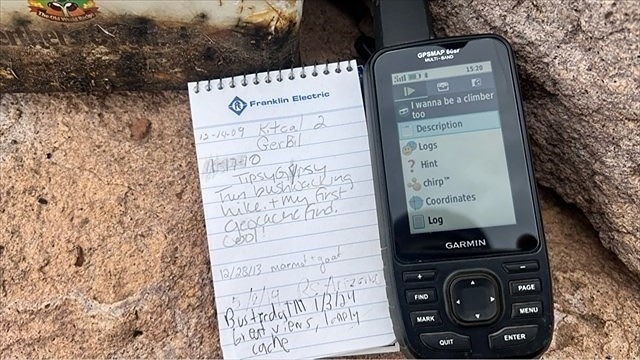 The Old World Recipe
Franklin Electric
12-14-09 Kitcat 2
Gerbil
11-17-10
TipsyGypsy
Fun bushwacking
hike. + my first
geocache find.
Cool!
12/28/13 marmot + goat
BustrdgTM 1/3/24
Great views, lonely
cache
GPSMAP 66sr
MULTI-BAND
15:20
I wanna be a climber
too
Description
Logs
Hint
chirp™
Coordinates
Log
GARMIN
+
-
FIND
PAGE
MARK
MENU
QUIT
ENTER